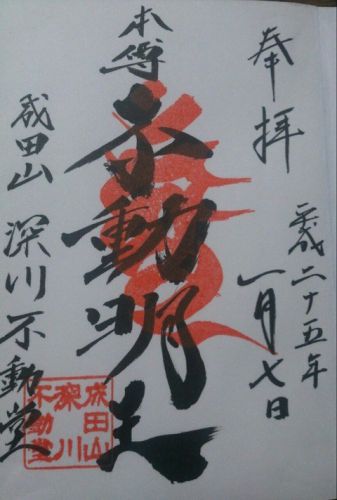 奉拝
平成二十五年
一月七日
本尊
不動明王
成田山 深川不動堂
成田山
深川
不動堂